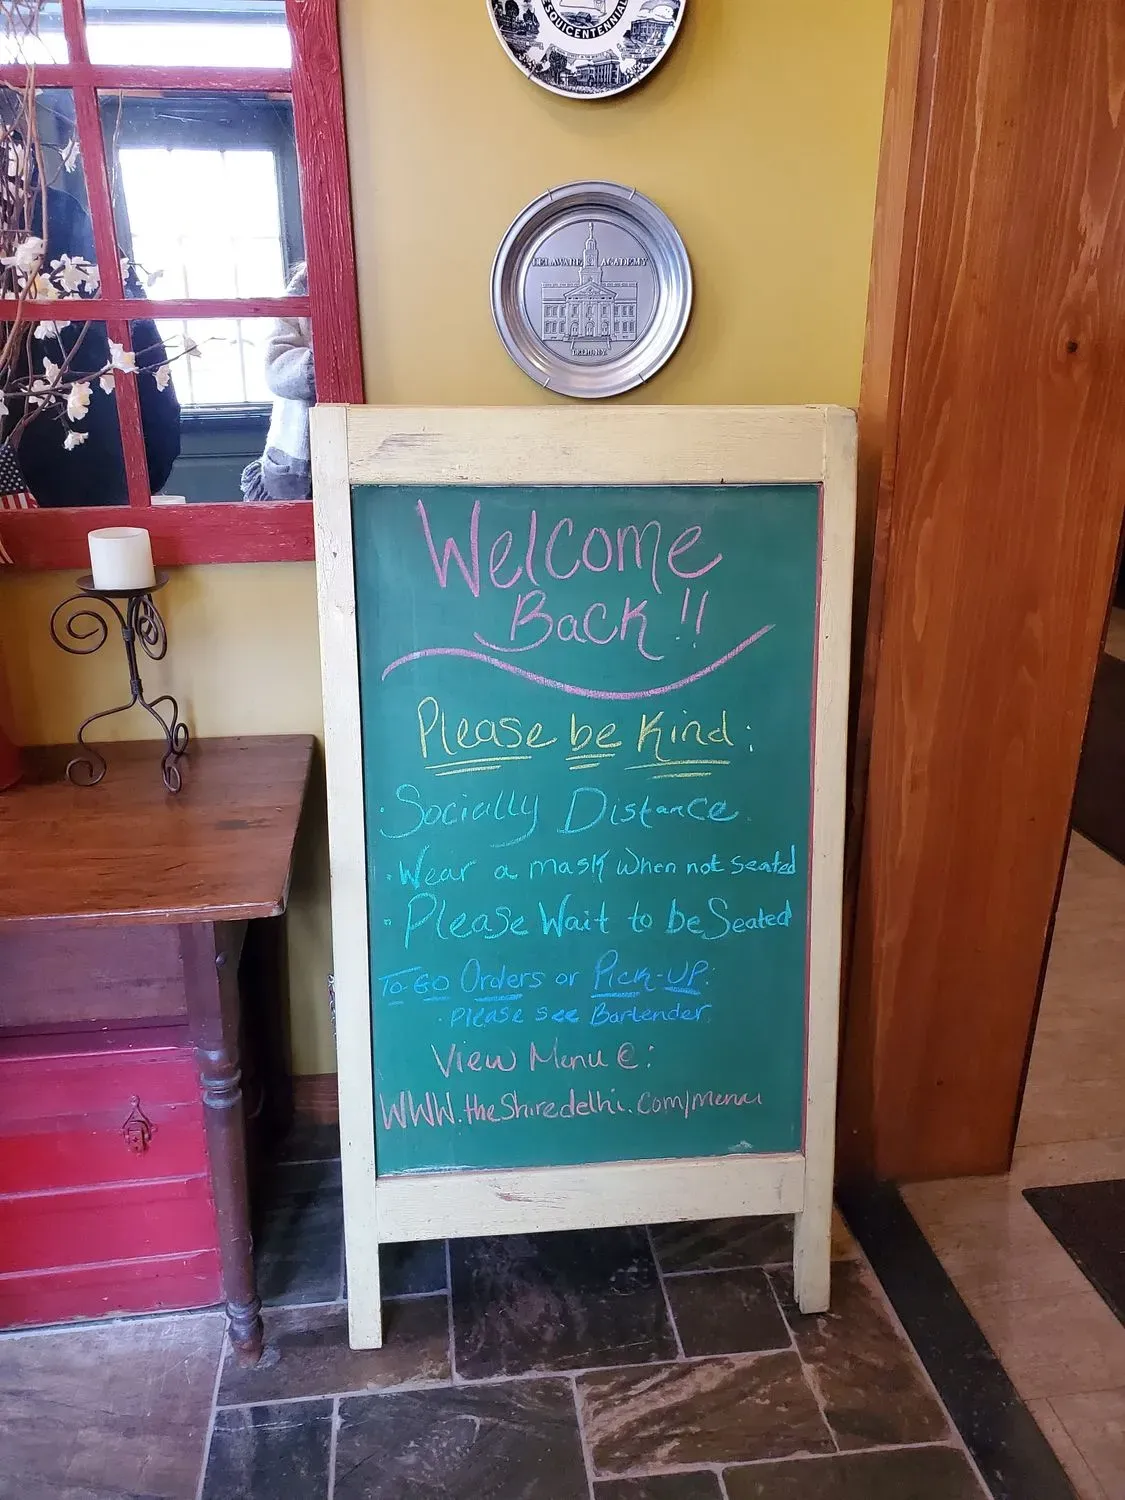 SQUICENTENNIAL
DELAWARE ACADEMY
DELHI, N.Y.
Welcome
Back!!
Please be Kind:
· Socially Distance
· Wear a mask when not seated
· Please Wait to be Seated
To GO Orders or Pick-UP:
· Please see Bartender
View Menu @:
WWW.theShiredelhi.com/menu